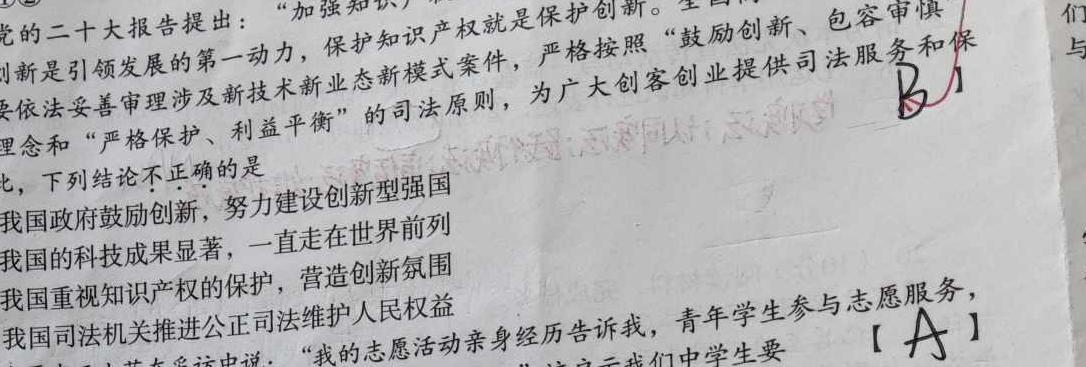 党的二十大报告提出：“加强知识
创新是引领发展的第一动力，保护知识产权就是保护创新。全国
要依法妥善审理涉及新技术新业态新模式案件，严格按照“鼓励创新、包容审慎”
理念和“严格保护、利益平衡”的司法原则，为广大创客创业提供司法服务和保
比，下列结论不正确的是
【 B 】
我国政府鼓励创新，努力建设创新型强国
我国的科技成果显著，一直走在世界前列
我国重视知识产权的保护，营造创新氛围
我国司法机关推进公正司法维护人民权益
在采访中说：“我的志愿活动亲身经历告诉我，青年学生参与志愿服务，
我们中学生要
【 A 】
们
与